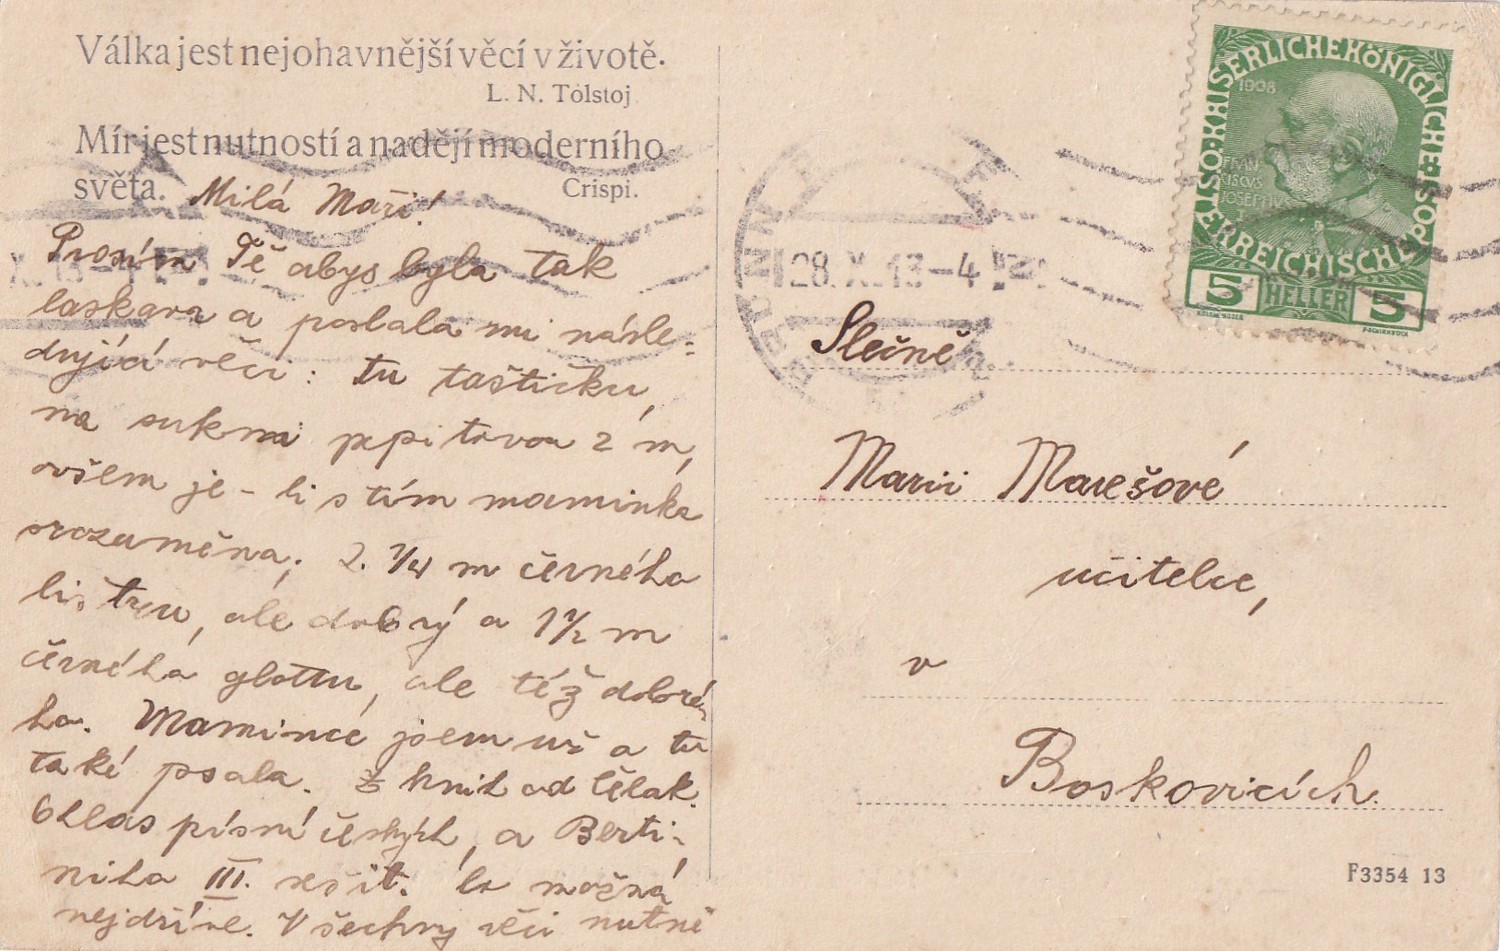 Válka jest nejohavnější věcí v životě.
L. N. Tolstoj
Mír jest nutností a nadějí moderního
světa. Crispi.
Milá Maři!
Prosím Tě abys byla tak
laskava a poslala mi násle-
dující věci: tu taštičku,
na sukni pepitovou 2 m,
ovšem je-li s tím maminka
srozuměna; 2. 1/4 m černého
listru, ale dobrý a 1 1/2 m
černého glottu, ale též dobré
ho. Mamince jsem už a tu
také psala. Z knih od Čelak.
Ohlas písní českých, a Berti-
niho III. sešit. Co možná
nejdříve. Všechny věci nutně
KAISERLICHE KÖNIGLICHE
ÖSTERREICHISCHE POST
1908
5 HELLER 5
BRÜNN
28. X. 13-4
Slečně
Marii Marešové
učitelce,
v
Boskovicích.
F3354 13